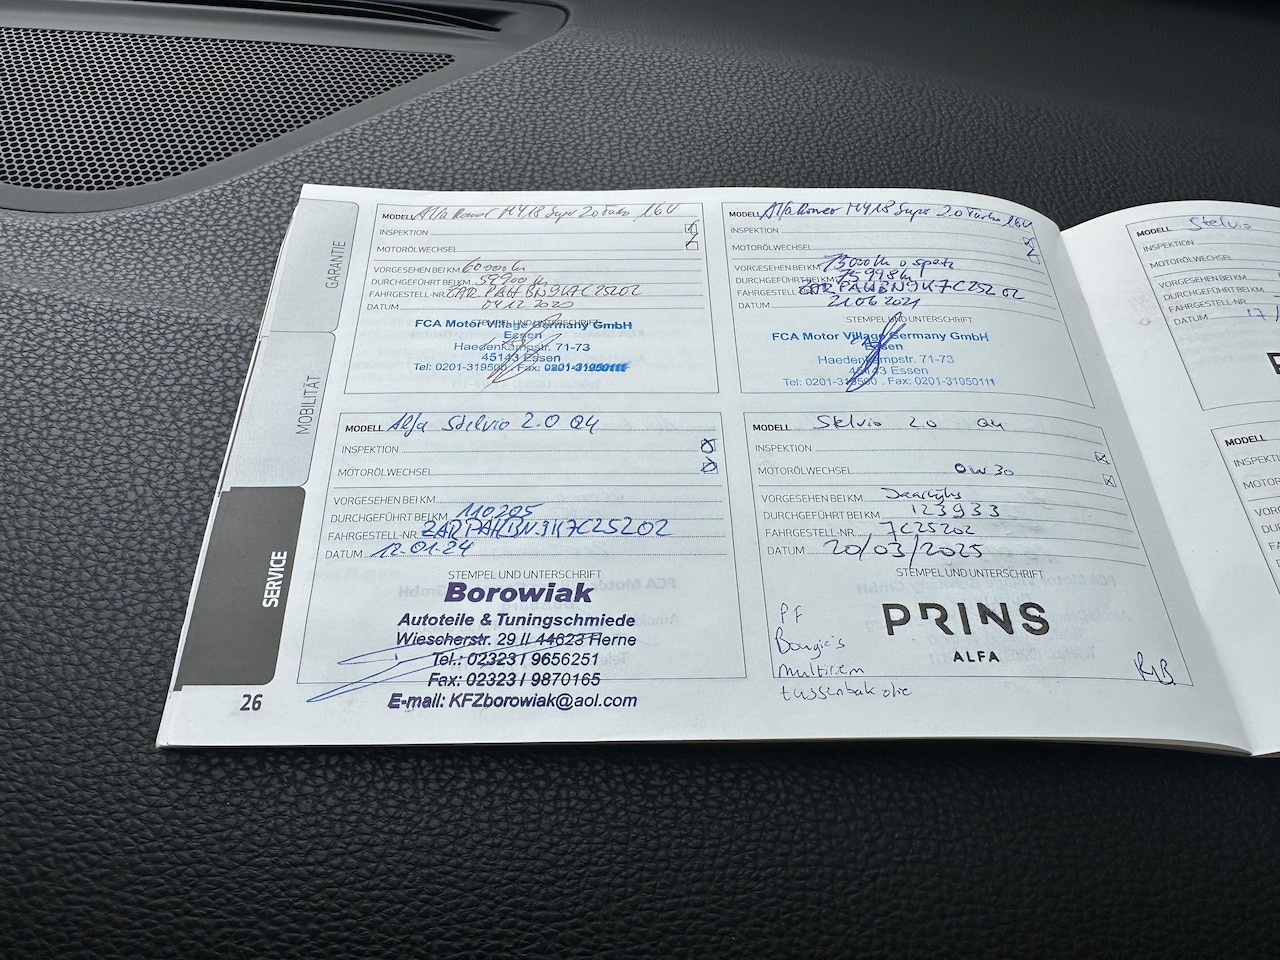 GARANTIE
MOBILITÄT
SERVICE
26
MODELL Alfa Romeo MY18 Super 2.0 Turbo 16V
INSPEKTION
MOTORÖLWECHSEL
VORGESEHEN BEI KM 60000 km
DURCHGEFÜHRT BEI KM 59900 km
FAHRGESTELL-NR. ZAR PAHBN9K7C25202
DATUM 04.12.2020
STEMPEL UND UNTERSCHRIFT
FCA Motor Village Germany GmbH
Essen
Haedenkampstr. 71-73
45143 Essen
Tel: 0201-319500 . Fax: 0201-31950111
MODELL Alfa Romeo MY18 Super 2.0 Turbo 16V
INSPEKTION
MOTORÖLWECHSEL
VORGESEHEN BEI KM 75000 km o spatr
DURCHGEFÜHRT BEI KM 75998 km
FAHRGESTELL-NR. ZAR PAHBN9K7C25202
DATUM 21.06 2021
STEMPEL UND UNTERSCHRIFT
FCA Motor Village Germany GmbH
Essen
Haedenkampstr. 71-73
45143 Essen
Tel: 0201-319500 . Fax: 0201-31950111
MODELL Alfa Stelvio 2.0 Q4
INSPEKTION
MOTORÖLWECHSEL
VORGESEHEN BEI KM
DURCHGEFÜHRT BEI KM 110205
FAHRGESTELL-NR. ZARPAHBN9K7C25202
DATUM 12.01.24
STEMPEL UND UNTERSCHRIFT
Borowiak
Autoteile & Tuningschmiede
Wiescherstr. 29 // 44623 Herne
Tel.: 02323 / 9656251
Fax: 02323 / 9870165
E-mail: KFZborowiak@aol.com
MODELL Stelvio 2.0 Q4
INSPEKTION
MOTORÖLWECHSEL 0W30
VORGESEHEN BEI KM Jaarlijks
DURCHGEFÜHRT BEI KM 123933
FAHRGESTELL-NR. 7C25202
DATUM 20/03/2025
STEMPEL UND UNTERSCHRIFT
PRINS
ALFA
PF
Bougie's
multiriem
tussenbak olie
MODELL Stelvio
INSPEKTION
MOTORÖLWECHSEL
VORGESEHEN BEI KM
DURCHGEFÜHRT BEI KM
FAHRGESTELL-NR.
DATUM 17/
MODELL